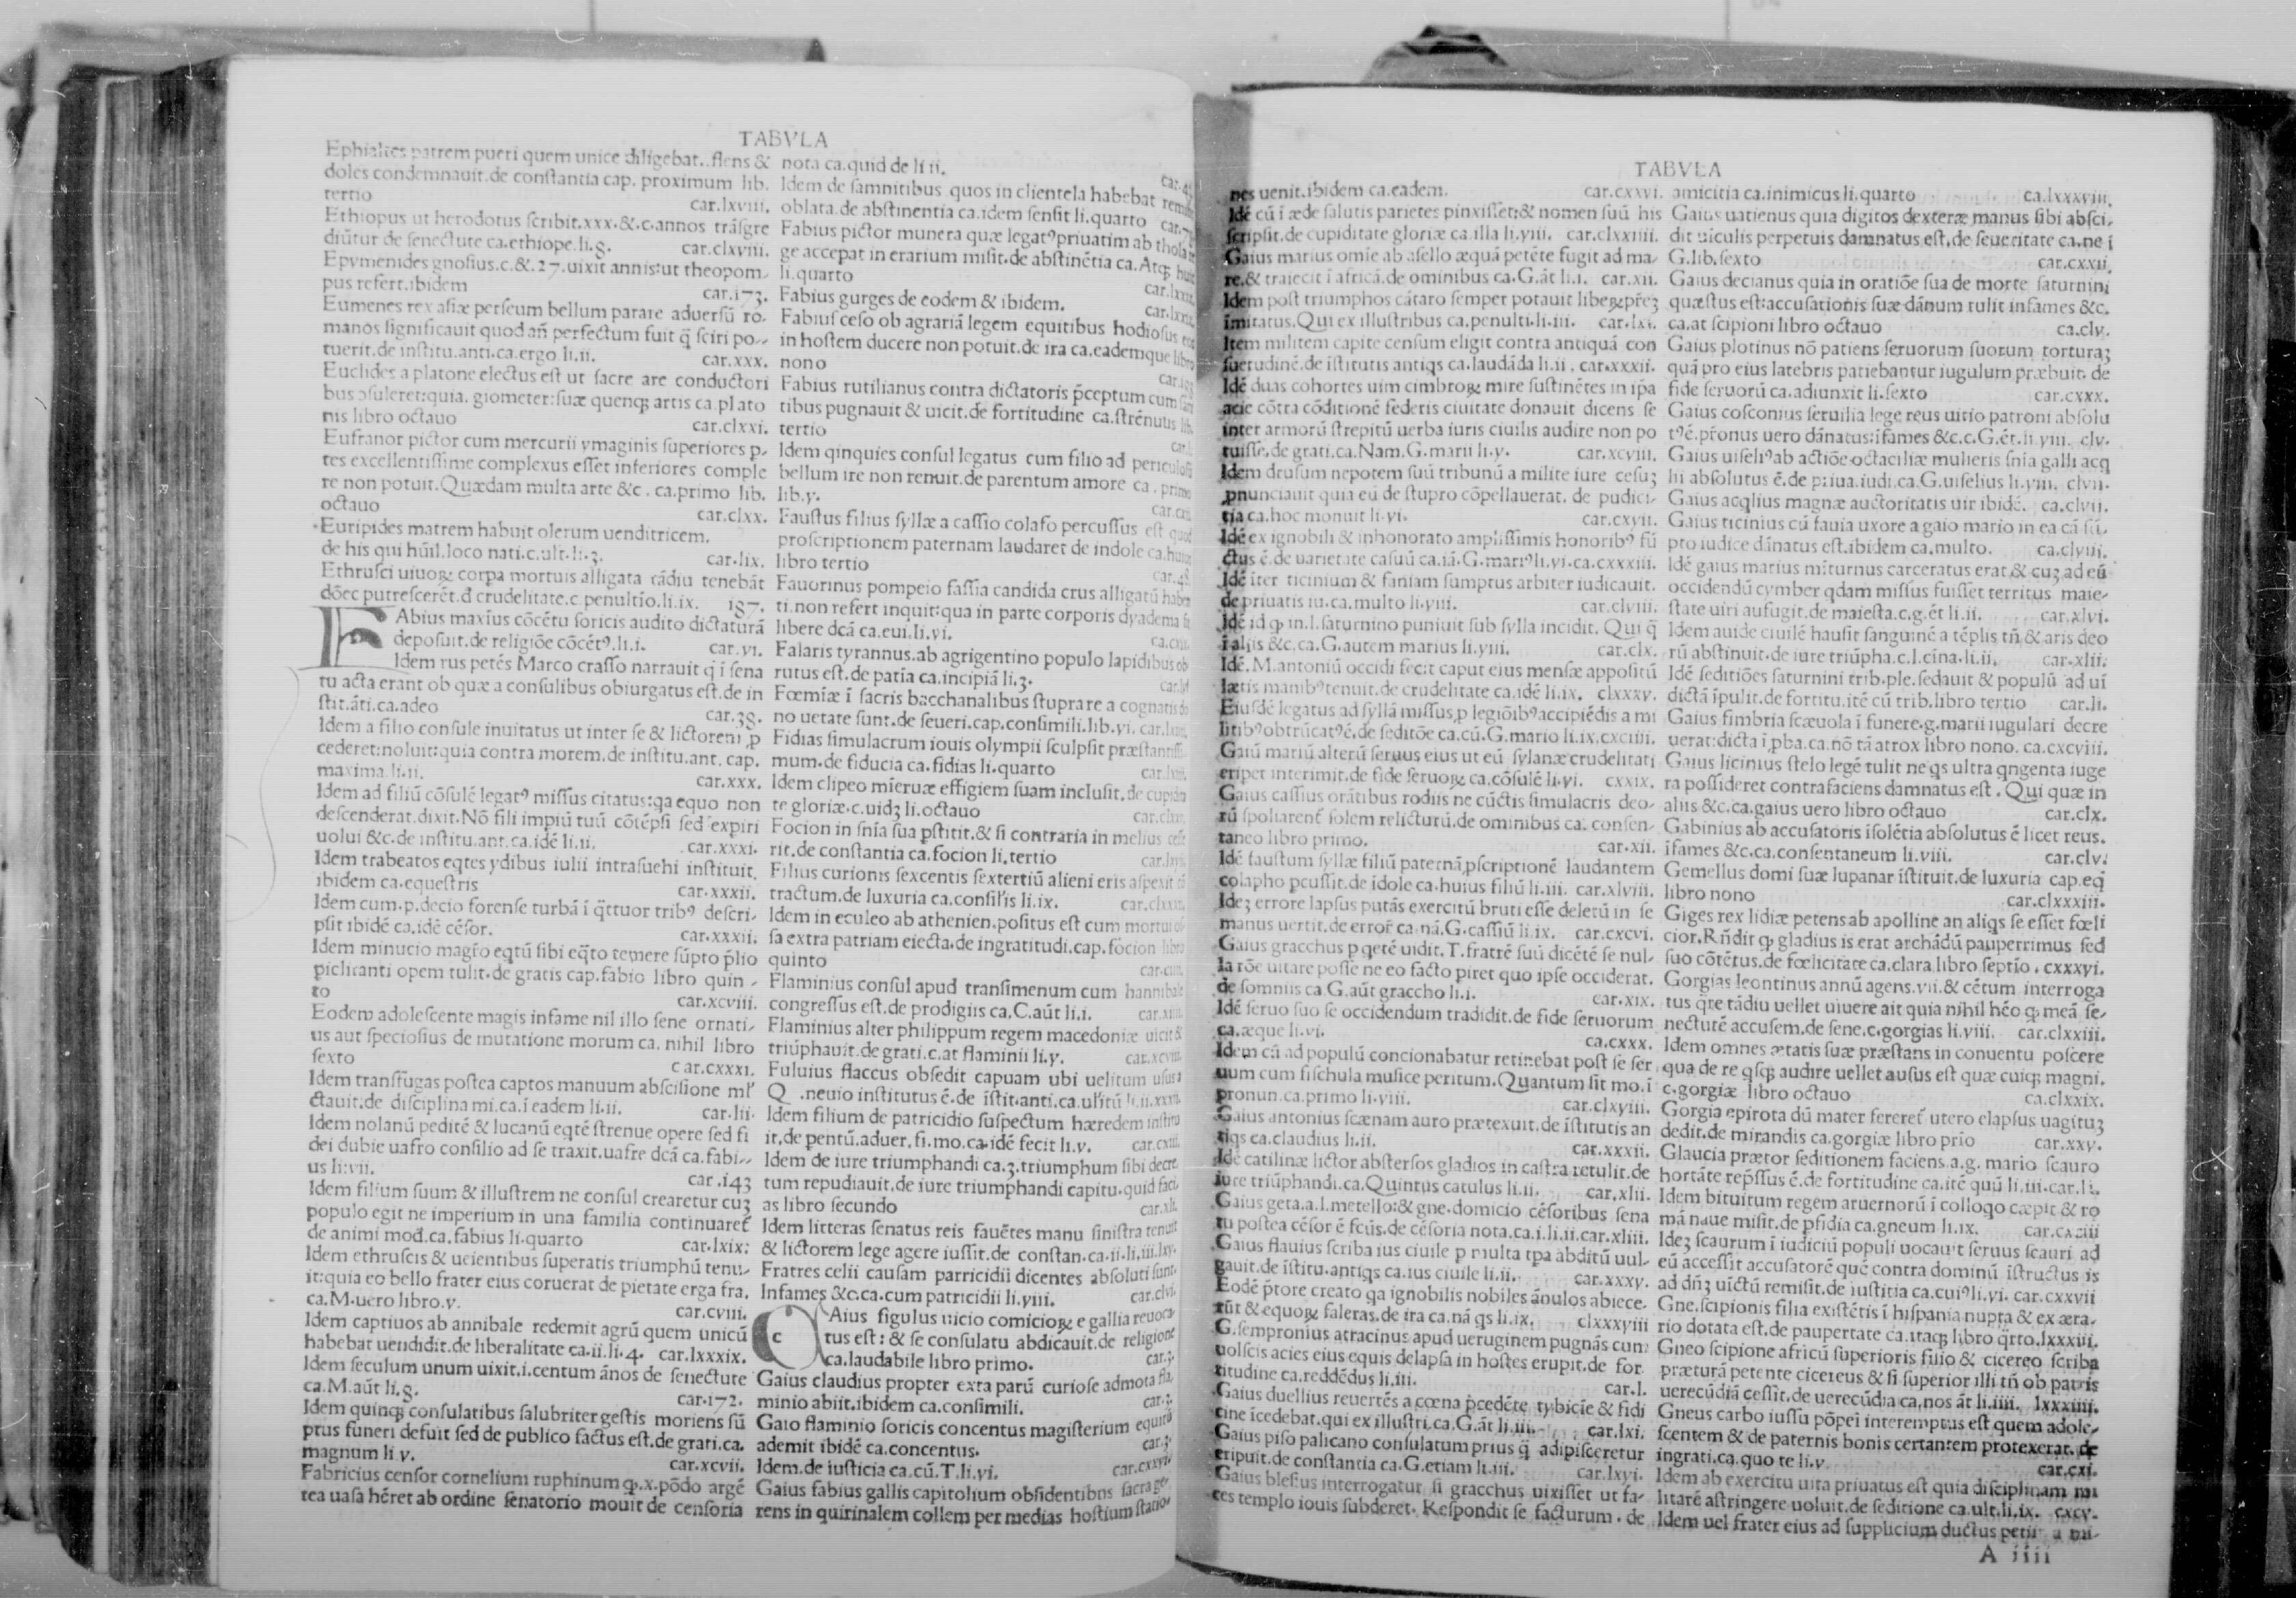 TABVLA
Ephialtes patrem pueri quem unice diligebat. flens &
doles condemnauit.de conſtantia cap. proximum lib.
tertio car.lxviii.
Ethiopus ut herodotus ſcribit.xxx.&.c.annos trãſgre
diũtur de ſenectute ca.ethiope.li.8. car.clxviii.
Epymenides gnoſius.c.&.27.uixit annis:ut theopom-
pus refert.ibidem car.173.
Eumenes rex aſiæ perſeum bellum parare aduerſũ ro-
manos ſignificauit quod añ perfectum fuit q̃ ſciri po-
tuerit.de inſtitu.anti.ca.ergo li.ii. car.xxx.
Euclides a platone electus eſt ut ſacre are conductori
bus ɔſuleret:quia. giometer:ſuæ quenqȝ artis ca.plato
nis libro octauo car.clxxi.
Eufranor pictor cum mercurii ymaginis ſuperiores p-
tes excellentiſſime complexus eſſet inferiores comple
re non potuit.Quædam multa arte &c. ca.primo lib.
octauo car.clxx.
Euripides matrem habuit olerum uenditricem.
de his qui hũil.loco nati.c.ult.li.3. car.lix.
Ethruſci uiuoꝝ corpa mortuis alligata tãdiu tenebãt
dõec putreſcerẽt.đ crudelitate.c penultio.li.ix. 187.
FAbius maxius cõcẽtu ſoricis audito dictaturã
depoſuit.de religiõe cõcẽtꝰ.li.i. car.vi.
Idem rus petẽs Marco craſſo narrauit q̃ ĩ ſena
tu acta erant ob quæ a conſulibus obiurgatus eſt.de in
ſtit.ãti.ca.adeo car.38.
Idem a filio conſule inuitatus ut inter ſe & lictorem ꝓ
cederet:noluit:quia contra morem.de inſtitu.ant. cap.
maxima.li.ii. car.xxx.
Idem ad filiũ cõſulẽ legatꝰ miſſus citatus:qa equo non
deſcenderat.dixit.Nõ fili impiũ tuũ cõtẽpſi ſed expiri
uolui &c.de inſtitu.ant.ca.idẽ li.ii. car.xxxi.
Idem trabeatos eqtes ydibus iulii intraſuehi inſtituit.
ibidem ca.equeſtris car.xxxii.
Idem cum.p.decio forenſe turbã ĩ q̃ttuor tribꝰ deſcri-
pſit ibidẽ ca.idẽ cẽſor. car.xxxii.
Idem minucio magro eqtũ ſibi eq̃to temere ſũpto p̃lio
piclitanti opem tulit.de gratis cap.fabio libro quin-
to car.xcviii.
Eodem adoleſcente magis infame nil illo ſene ornati-
us aut ſpecioſius de mutatione morum ca. nihil libro
ſexto car.cxxxi.
Idem tranſfugas poſtea captos manuum abſciſione ml'
ctauit.de diſciplina mi.ca.ĩ eadem li.ii. car.lii.
Idem nolanũ peditẽ & lucanũ eqtẽ ſtrenue opere ſed fi
dei dubie uafro conſilio ad ſe traxit.uafre dc̃ã ca.fabi-
us li.vii. car.143
Idem filium ſuum & illuſtrem ne conſul crearetur cuȝ
populo egit ne imperium in una familia continuaret̃
de animi mod̃.ca.fabius li.quarto car.lxix.
Idem ethruſcis & ueientibus ſuperatis triumphũ tenu-
it:quia eo bello frater eius coruerat de pietate erga fra.
ca.M.uero libro.v. car.cviii.
Idem captiuos ab annibale redemit agrũ quem unicũ
habebat uendidit.de liberalitate ca.ii.li.4. car.lxxxix.
Idem ſeculum unum uixit.i.centum ãnos de ſenectute
ca.M.aũt li.8. car.172.
Idem quinqȝ conſulatibus ſalubriter geſtis moriens ſũ
ptus funeri defuit ſed de publico factus eſt.de grati.ca.
magnum li v. car.xcvii.
Fabricius cenſor cornelium ruphinum qꝫ.x.põdo argẽ
tea uaſa hẽret ab ordine ſenatorio mouit de cenſoria
nota ca.quid de li ii.
Idem de ſamnitibus quos in clientela habebat
oblata.de abſtinentia ca.idem ſenſit li.quarto
Fabius pictor munera quæ legatꝰpriuatim ab
ge accepat in erarium miſit.de abſtinẽtia ca.Atqȝ
li.quarto
Fabius gurges de eodem & ibidem.
Fabiuſ ceſo ob agrariã legem equitibus hodioſus
in hoſtem ducere non potuit.de ira ca.eademque libro
nono
Fabius rutilianus contra dictatoris p̃ceptum cum
tibus pugnauit & uicit.de fortitudine ca.ſtrẽnuus
tertio
Idem qinquies conſul legatus cum filio ad
bellum ire non renuit.de parentum amore ca. primo
lib.v.
Fauſtus filius ſyllæ a caſſio colafo percuſſus eſt quod
proſcriptionem paternam laudaret de indole ca.huius
libro tertio
Fauorinus pompeio faſſia candida crus alligatũ
ti.non refert inquit:qua in parte corporis dyadema
libere dc̃ã ca.eui.li.vi.
Falaris tyrannus.ab agrigentino populo lapidibus ob
rutus eſt.de patia ca.incipiã li.3.
Fœmiæ ĩ ſacris bacchanalibus ſtuprare a cognatis
no uetate ſunt.de ſeueri.cap.conſimili.lib.vi.
Fidias ſimulacrum iouis olympii ſculpſit
mum.de fiducia ca.fidias li.quarto
Idem clipeo mieruæ effigiem ſuam incluſit.de
te gloriæ.c.uidȝ li.octauo
Focion in ſnĩa ſua pſtitit.& ſi contraria in melius
rit.de conſtantia ca.focion li.tertio
Filius curionis ſexcentis ſextertiũ alieni eris
tractum.de luxuria ca.conſilis li.ix.
Idem in eculeo ab athenien.poſitus eſt cum
ſa extra patriam eiecta.de ingratitudi.cap.focion libro
quinto
Flaminius conſul apud tranſimenum cum hannibale
congreſſus eſt.de prodigiis ca,C.aũt li.i.
Flaminius alter philippum regem macedoniæ uicit &
triũphauit.de grati.c.at flaminii li.v. car.xcviii.
Fuluius flaccus obſedit capuam ubi uelitum
Q .neuio inſtitutus ẽ.de ĩſtit.anti.ca.
Idem filium de patricidio ſuſpectum hæredem
it.de pentũ.aduer.fi.mo.ca.idẽ fecit li.v.
Idem de iure triumphandi ca.3.triumphum ſibi decre.
tum repudiauit.de iure triumphandi capitu.quid
as libro ſecundo car.xli.
Idem litteras ſenatus reis fauẽtes manu ſiniſtra tenuit
& lictorem lege agere iuſſit.de conſtan.ca.ii.li.iii.lxv.
Fratres celii cauſam parricidii dicentes abſoluti ſunt.
Infames &c.ca.cum patricidii li.viii. car.clvi.
c
GAius figulus uicio comicioꝝ e gallia reuoca-
tus eſt: & ſe conſulatu abdicauit.de religione
ca.laudabile libro primo. car.3.
Gaius claudius propter exta parũ curioſe admota
minio abiit.ibidem ca.conſimili. car.3.
Gaio flaminio ſoricis concentus magiſterium equitũ
ademit ibidẽ ca.concentus. car.3.
Idem.de iuſticia ca.cũ.T.li.vi. car.cxxvi.
Gaius fabius gallis capitolium obſidentibns ſacra ge-
rens in quirinalem collem per medias hoſtium ſtatio-
TABVLA
nes uenit.ibidem ca.eadem. car.cxxvi.
Idẽ cũ ĩ æde ſalutis parietes pinxiſſet:& nomen ſuũ his
ſcripſit.de cupiditate gloriæ ca.illa li.viii. car.clxxiiii.
Gaius marius omie ab aſello æquã petẽte fugit ad ma-
re.& traiecit ĩ africã.de ominibus ca.G.ãt li.i. car.xii.
Idem poſt triumphos cãtaro ſemper potauit
ĩmitatus.Qui ex illuſtribus ca.penulti.li.iii. car.lxi.
Item militem capite cenſum eligit contra antiquã con
ſuetudinẽ.de ĩſtitutis antiqs ca.laudãda li.ii. car.xxxii.
Idẽ duas cohortes uim cimbroꝝ mire ſuſtinẽtes in ip̃a
acie cõtra cõditionẽ federis ciuitate donauit dicens ſe
inter armorũ ſtrepitũ uerba iuris ciuilis audire non po
tuiſſe.de grati.ca.Nam.G.marii li.v. car.xcviii.
Idem druſum nepotem ſuũ tribunũ a milite iure ceſuȝ
ꝓnunciauit quia eũ de ſtupro cõpellauerat. de pudici-
tia ca.hoc monuit li.vi. car.cxvii.
Idẽ ex ignobili & inhonorato ampliſſimis honoribꝰ fũ
ctus ẽ.de uarietate caſuũ ca.iã.G.mariꝰli.vi.ca.cxxxiii.
Idẽ iter ticinium & faniam ſumptus arbiter iudicauit.
de priuatis iu.ca.multo li.viii. car.clviii.
Idẽ id qꝫ in.l.ſaturnino puniuit ſub ſylla incidit. Qui q̃
ĩ aliis &c.ca.G.autem marius li.viii. car.clx.
Idẽ.M.antoniũ occidi fecit caput eius menſæ appoſitũ
lætis manibꝰtenuit.de crudelitate ca.idẽ li.ix. clxxxv.
Eiuſdẽ legatus ad ſyllã miſſus,ꝑ legiõibꝰaccipiẽdis a mi
litibꝰobtrũcatꝰẽ.de ſeditõe ca.cũ.G.mario li.ix.cxciiii.
Gaiũ mariũ alterũ ſeruus eius ut eũ ſylanæ crudelitati
eripet interimit.de fide ſeruoꝝ ca.cõſulẽ li.vi. cxxix.
Gaius caſſius orãtibus rodiis ne cũctis ſimulacris deo-
rũ ſpoliarent̃ ſolem relicturũ.de ominibus ca. conſen-
taneo libro primo. car.xii.
Idẽ fauſtum ſyllæ filiũ paternã,pſcriptionẽ laudantem
colapho pcuſſit.de ĩdole ca.huius filiũ li.iii. car.xlviii.
Ideȝ errore lapſus putãs exercitũ bruti eſſe deletũ in ſe
manus uertit.de error̃ ca.nã.G.caſſiũ li.ix. car.cxcvi.
Gaius gracchus p qetẽ uidit.T.fratrẽ ſuũ dicẽtẽ ſe nul-
la rõe uitare poſſe ne eo facto piret quo ipſe occiderat.
de ſomniis ca.G.aũt graccho li.i. car.xix.
Idẽ ſeruo ſuo ſe occidendum tradidit.de fide ſeruorum
ca.æque li.vi. ca.cxxx.
Idem cũ ad populũ concionabatur retinebat poſt ſe ſer
uum cum fiſchula muſice peritum.Quantum ſit mo.ĩ
pronun.ca.primo li.viii. car.clxviii.
Gaius antonius ſcænam auro prætexuit.de ĩſtitutis an
tiqs ca.claudius li.ii. car.xxxii.
Idẽ catilinæ lictor abſterſos gladios in caſtra retulit.de
iure triũphandi.ca.Quintus catulus li.ii. car.xlii.
Gaius geta.a.l.metello:& gne.domicio cẽſoribus ſena
tu poſtea cẽſor ẽ fcũs.de cẽſoria nota.ca.i.li.ii.car.xliii.
Gaius flauius ſcriba ius ciuile p multa tpa abditũ uul-
gauit.de ĩſtitu.antiqs ca.ius ciuile li.ii. car.xxxv.
Eodẽ p̃tore creato qa ignobilis nobiles ãnulos abiece-
rũt & equoꝝ faleras.de ira ca.nã qs li.ix. clxxxviii
G.ſempronius atracinus apud ueruginem pugnãs cum
uolſcis acies eius equis delapſa in hoſtes erupit.de for.
titudine ca.reddẽdus li.iii. car.l.
Gaius duellius reuertẽs a cœna p̃cedẽte tybicĩe & fidi
cine ĩcedebat.qui ex illuſtri.ca.G.ãt li.iii. car.lxi.
Gaius piſo palicano conſulatum prius q̃ adipiſceretur
eripuit.de conſtantia ca.G.etiam li.iii. car.lxvi.
Gaius bleſius interrogatur ſi gracchus uixiſſet ut fa-
ces templo iouis ſubderet. Reſpondit ſe facturum. de
amicitia ca.inimicus li.quarto ca.lxxxviii.
Gaius uatienus quia digitos dexteræ manus ſibi abſci-
dit uiculis perpetuis damnatus eſt.de ſeueritate ca.ne ĩ
G.lib.ſexto car.cxxii.
Gaius decianus quia in oratiõe ſua de morte ſaturnini
quæſtus eſt:accuſationis ſuæ dãnum tulit infames &c.
ca.at ſcipioni libro octauo ca.clv.
Gaius plotinus nõ patiens ſeruorum ſuorum torturaȝ
quã pro eius latebris patiebantur iugulum præbuit. de
fide ſeruorũ ca.adiunxit li.ſexto car.cxxx.
Gaius coſconius ſeruilia lege reus uitio patroni abſolu
tꝰẽ.pr̃onus uero dãnatus:ĩfames &c.c.G.ẽt.li.viii. clv.
Gaius uiſeliꝰab actiõe octaciliæ mulieris ſnĩa galli acq
lii abſolutus ẽ.de p:iua.iudi.ca.G.uiſelius li.viii. clvii.
Gaius acqlius magnæ auctoritatis uir ibidẽ. ca.clvii.
Gaius ticinius cũ fauia uxore a gaio mario in ea cã ſũ.
pto iudice dãnatus eſt.ibidem ca.multo. ca.clviii.
Idẽ gaius marius mĩturnus carceratus erat & cuȝ ad eũ
occidendũ cymber qdam miſſus fuiſſet territus maie-
ſtate uiri aufugit.de maieſta.c.g.ẽt li.ii. car.xlvi.
Idem auide ciuilẽ hauſit ſanguinẽ a tẽplis tñ & aris deo
rũ abſtinuit.de iure triũpha.c.l.cĩna.li.ii. car.xlii.
Idẽ ſeditiões ſaturnini trib.ple.ſedauit & populũ ad uĩ
dictã ĩpulit.de fortitu.itẽ cũ trib.libro tertio car.li.
Gaius fimbria ſcæuola ĩ funere.g.marii iugulari decre
uerat:dicta ĩ,pba.ca.nõ tã atrox libro nono. ca.cxcviii.
Gaius licinius ſtelo legẽ tulit ne qs ultra qngenta iuge
ra poſſideret contrafaciens damnatus eſt. Qui quæ in
aliis &c.ca.gaius uero libro octauo car.clx.
Gabinius ab accuſatoris ĩſolẽtia abſolutus ẽ licet reus.
ĩfames &c.ca.conſentaneum li.viii. car.clv.
Gemellus domi ſuæ lupanar ĩſtituit.de luxuria cap.eq̃
libro nono car.clxxxiii.
Giges rex lidiæ petens ab apolline an aliqs ſe eſſet fœli
cior.Rñdit qꝫ gladius is erat archãdũ pauperrimus ſed
ſuo cõtẽtus.de fœlicitate ca.clara libro ſeptĩo. cxxxvi.
Gorgias leontinus annũ agens.vii.& cẽtum interroga
tus q̃re tãdiu uellet uiuere ait quia nihil hẽo qꝫ meã ſe-
nectutẽ accuſem.de ſene.c.gorgias li.viii. car.clxxiii.
Idem omnes ætatis ſuæ præſtans in conuentu poſcere
qua de re qſqȝ audire uellet auſus eſt quæ cuiqȝ magni.
c.gorgiæ libro octauo ca.clxxix.
Gorgia epirota dũ mater ferceret̃ utero elapſus uagituȝ
dedit.de mirandis ca.gorgiæ libro prĩo car.xxv.
Glaucia prætor ſeditionem faciens a.g. mario ſcauro
hortãte rep̃ſſus ẽ.de fortitudine ca.itẽ quũ li.iii.car.li.
Idem bituitum regem aruernorũ ĩ colloqo cæpit & ro
mã naue miſit.de pfidia ca.gneum li.ix. car.cxciii
Ideȝ ſcaurum ĩ iudiciũ populi uocauit ſeruus ſcauri ad
eũ acceſſit accuſatorẽ quẽ contra dominũ ĩſtructus is
ad dñȝ uĩctũ remiſit.de iuſtitia ca.cuiꝰli.vi. car.cxxvii
Gne.ſcipionis filia exiſtẽtis ĩ hiſpania nupta & ex æra-
rio dotata eſt.de paupertate ca.itaqȝ libro q̃rto.lxxxiii.
Gneo ſcipione africũ ſuperioris filio & cicereo ſcriba
præturã petente cicereus & ſi ſuperior illi tñ ob patris
uerecũdiã ceſſit.de uerecũdia ca,nos ãt li.iiii. lxxxiiii.
Gneus carbo iuſſu põpei interemptus eſt quem adole-
ſcentem & de paternis bonis certantem protexerat. de
ingrati.ca.quo te li.v. car.cxi.
Idem ab exercitu uita priuatus eſt quia diſciplinam mi
litarẽ aſtringere uoluit.de ſeditione ca.ult.li.ix. cxcv.
Idem uel frater eius ad ſupplicium ductus petii a mi-
A iiii